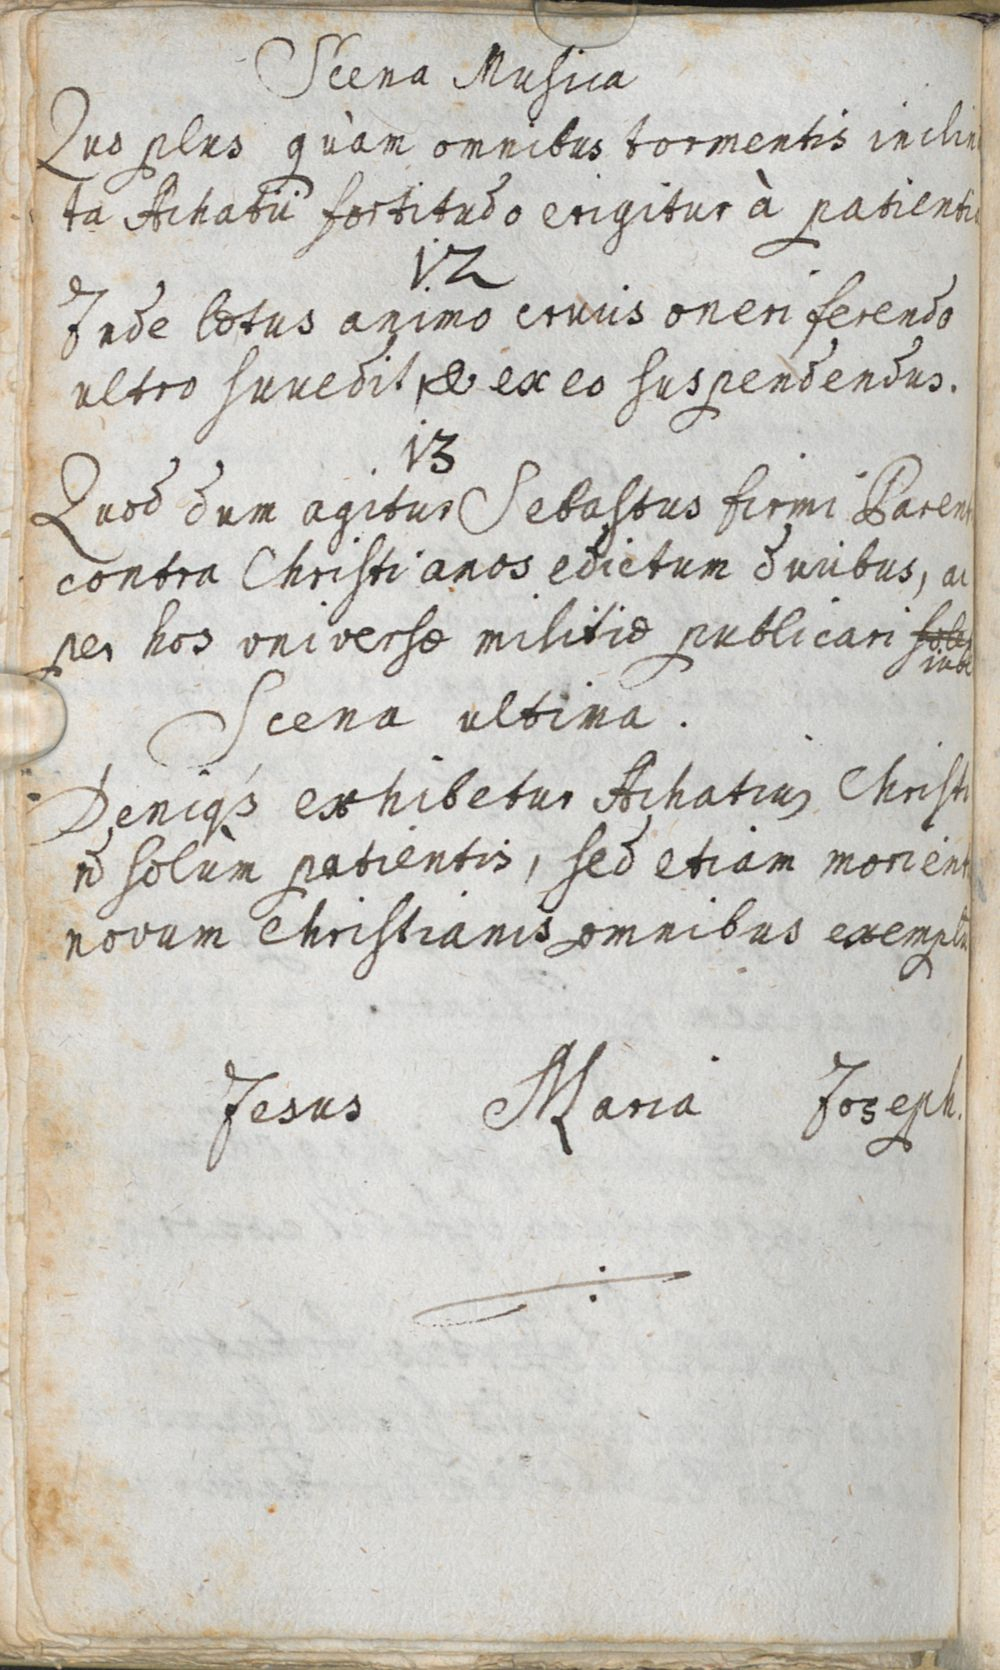 Scena Musica
Quo plus quàm omnibus tormentis inclina
ta Achatii fortitudo erigitur à patientia
12
Inde lætus animo crucis oneri ferendo
ultro succedit & ex eo suspendendus.
13
Quod dum agitur Sebastus firmi Parent
contra Christianos edictum ducibus, ac
per hos universæ militiæ publicari
iube
Scena ultima.
Deniqs exhibetur Achatius Christi
nō solùm patientis, sed etiam morient
novum Christianis omnibus exemplū
Jesus Maria Joseph.